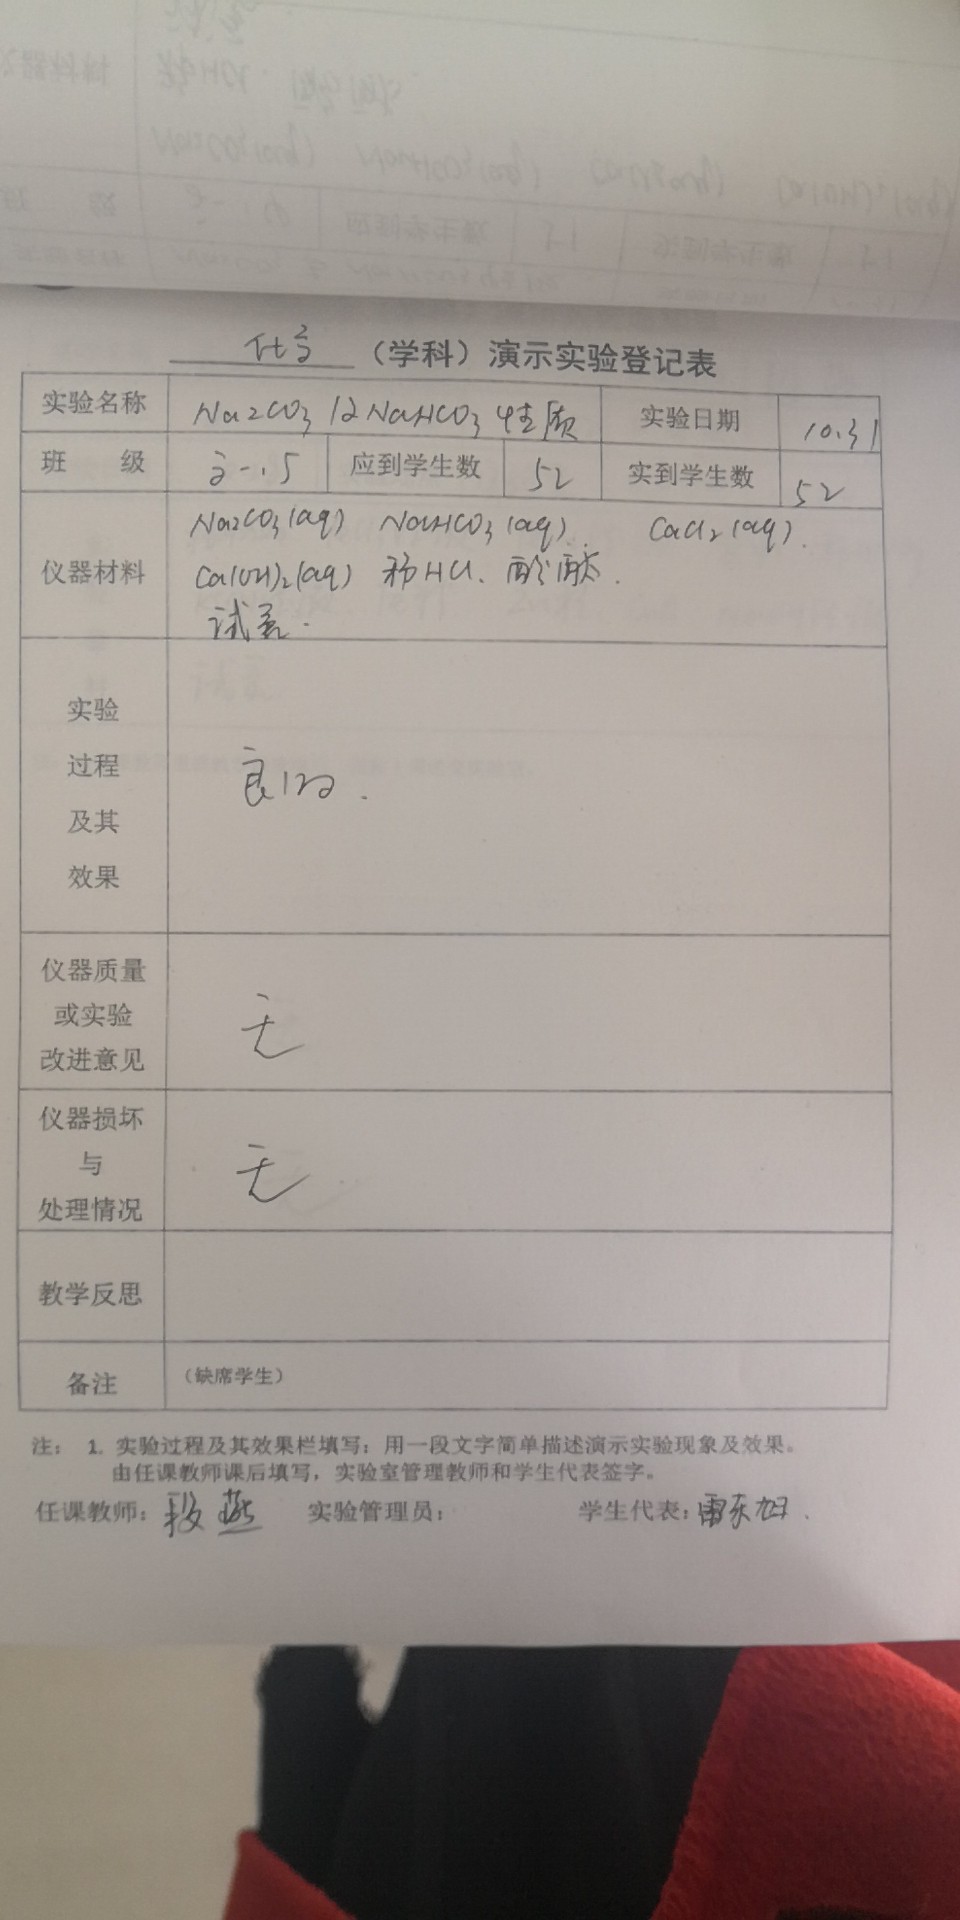 化学 （学科）演示实验登记表
实验名称 Na2CO3 与NaHCO3性质 实验日期 10.31
班 级 高一.15 应到学生数 52 实到学生数 52
Na2CO3(aq) NaHCO3(aq). CaCl2(aq).
仪器材料 Ca(OH)2(aq) 稀HCl. 酚酞.
试管.
实验
过程
良好.
及其
效果
仪器质量
或实验 无
改进意见
仪器损坏
与 无
处理情况
教学反思
备注 （缺席学生）
注： 1. 实验过程及其效果栏填写：用一段文字简单描述演示实验现象及效果。
由任课教师课后填写，实验室管理教师和学生代表签字。
任课教师：段燕 实验管理员： 学生代表：雷东旭.